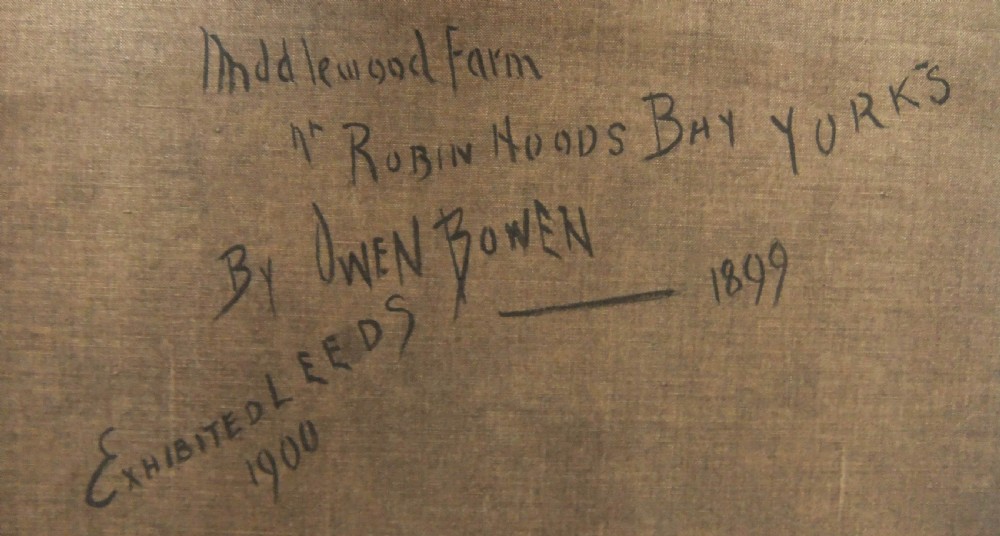 Middlewood Farm
nr ROBIN HOODS BAY YORKS
BY OWEN BOWEN
1899
EXHIBITED LEEDS
1900